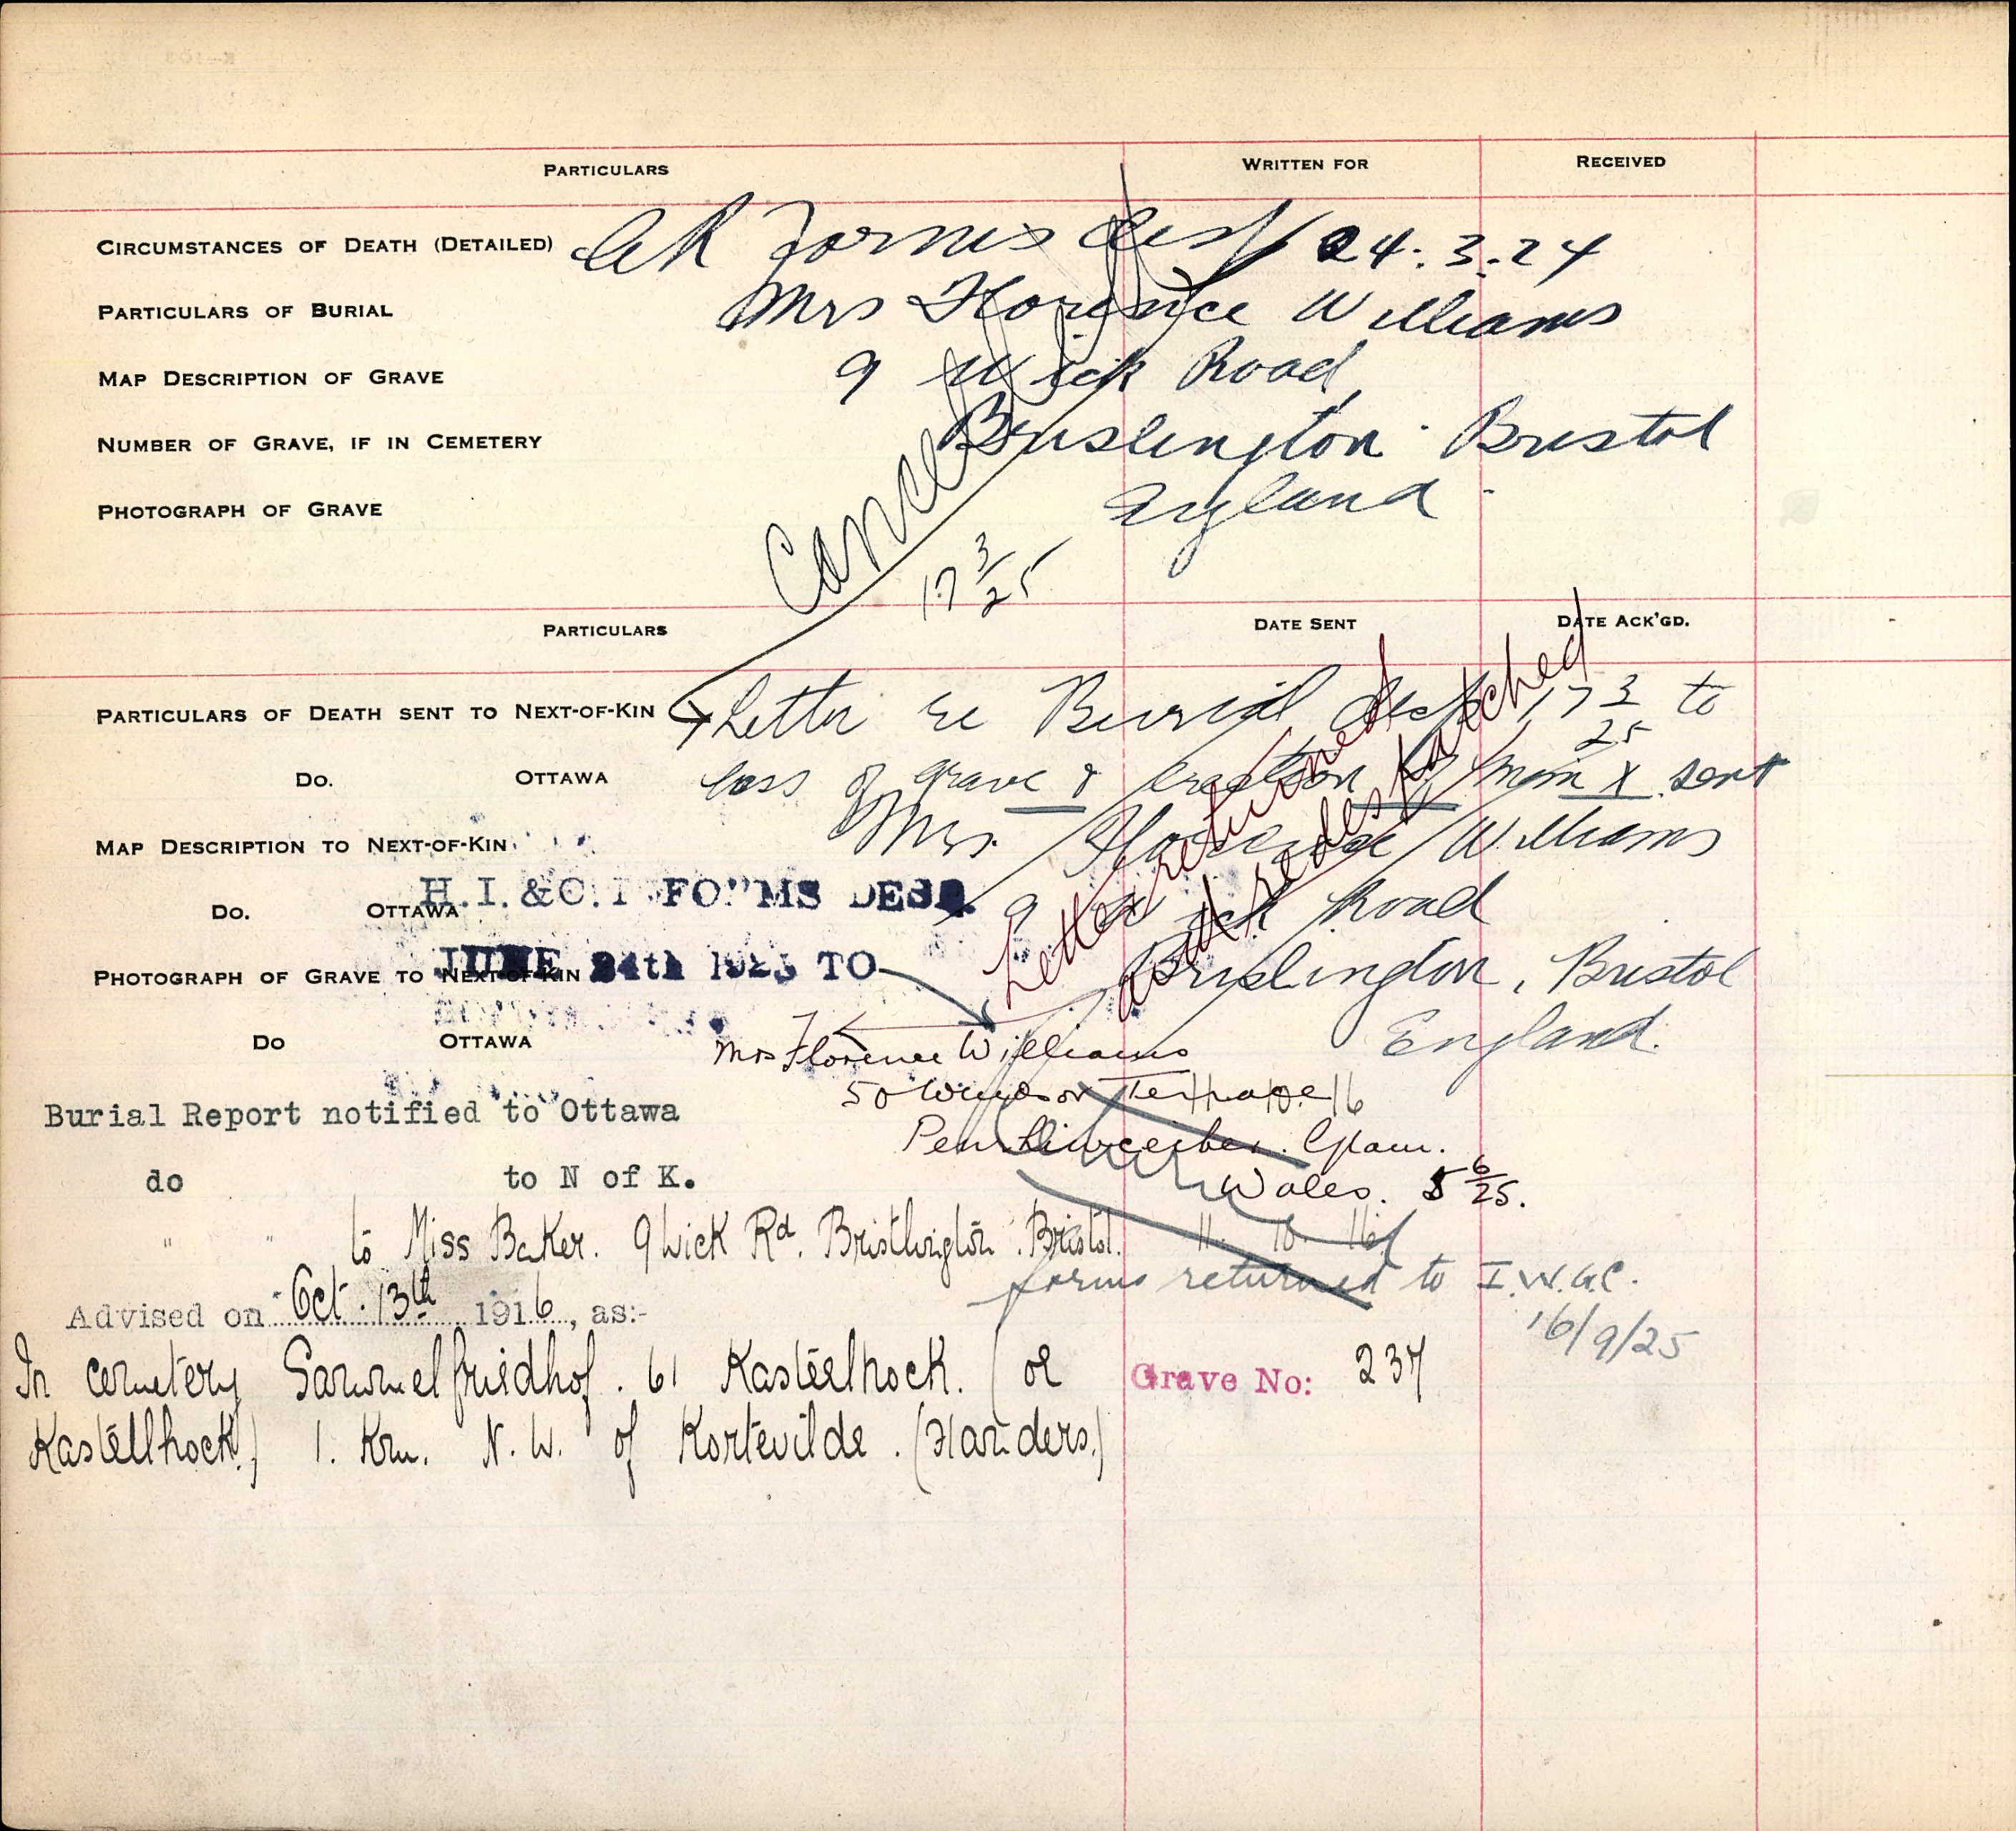 PARTICULARS WRITTEN FOR RECEIVED
CIRCUMSTANCES OF DEATH (DETAILED) Forms desp 24.3.24
PARTICULARS OF BURIAL Mrs Florence Williams
MAP DESCRIPTION OF GRAVE 9 Wick Road
NUMBER OF GRAVE, IF IN CEMETERY Brislington Bristol
PHOTOGRAPH OF GRAVE England
17 3/25
PARTICULARS DATE SENT DATE ACK'GD.
PARTICULARS OF DEATH SENT TO NEXT-OF-KIN Letter re Burial desp 17 3/25 to
DO. OTTAWA loss of grave & erection of mem X sent
MAP DESCRIPTION TO NEXT-OF-KIN Mrs. Florence Williams
DO. OTTAWA 9 Wick Road
H.I. & C. FORMS DESP.
PHOTOGRAPH OF GRAVE TO NEXT-OF-KIN Brislington, Bristol
JUNE 24th TO
England.
Letter returned and redespatched
DO OTTAWA Mrs Florence Williams
50 Windsor Terrace
Burial Report notified to Ottawa 11 10 16
Glam.
do to N of K. Wales. 5 6/25.
" " to Miss Baker. 9 Wick Rd. Bristlington. Bristol. 11 10 16
forms returned to I.W.G.C.
16/9/25
Advised on Oct. 13th 1916, as:-
In cemetery Sammelfriedhof. 61 Kasteelhoek. (or Grave No: 237
Kastellhoek) 1. Km. N.W. of Kortevilde. (Flanders.)